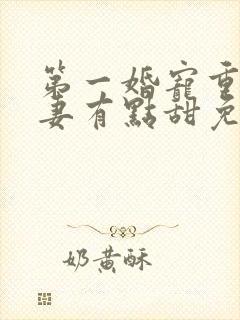 第一婚寵重
妻有點甜免
奶黃酥